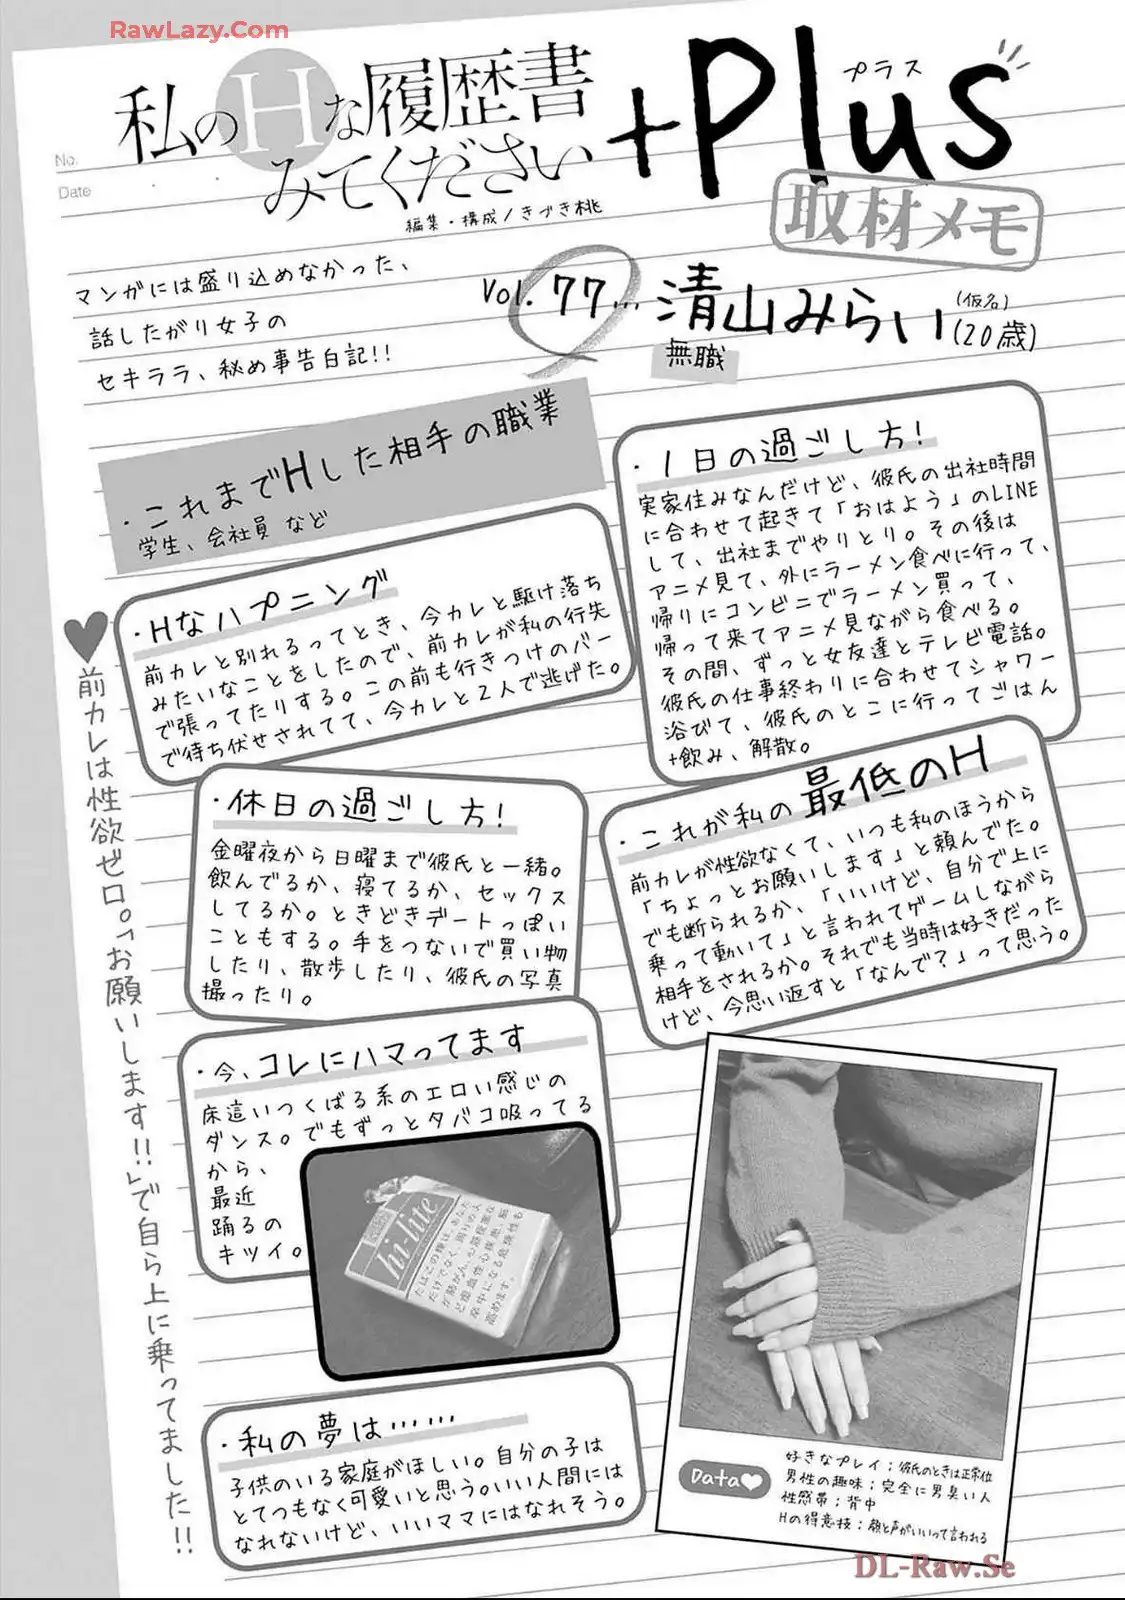 RawLazy.Com
私のHな履歴書
みてください
+Plus
プラス
No.
Date
編集・構成/きづき桃
取材メモ
マンガには盛り込めなかった、
話したがり女子の
セキララ、秘め事告白記!!
Vol.77… 清山みらい(仮名)(20歳)
無職
・これまでHした相手の職業
学生、会社員 など
・1日の過ごし方!
実家住みなんだけど、彼氏の出社時間
に合わせて起きて「おはよう」のLINE
して、出社までやりとり。その後は
アニメ見て、外にラーメン食べに行って、
帰りにコンビニでラーメン買って、
帰って来てアニメ見ながら食べる。
その間、ずっと女友達とテレビ電話。
彼氏の仕事終わりに合わせてシャワー
浴びて、彼氏のとこに行ってごはん
+飲み、解散。
・Hなハプニング
前カレと別れるってとき、今カレと駆け落ち
みたいなことをしたので、前カレが私の行先
で張ってたりする。この前も行きつけのバー
で待ち伏せされてて、今カレと2人で逃げた。
♥前カレは性欲ゼロ。「お願いします!!」で自ら上に乗ってました!!
・休日の過ごし方!
金曜夜から日曜まで彼氏と一緒。
飲んでるか、寝てるか、セックス
してるか。ときどきデートっぽい
こともする。手をつないで買い物
したり、散歩したり、彼氏の写真
撮ったり。
・これが私の最低のH
前カレが性欲なくて、いつも私のほうから
「ちょっとお願いします」と頼んでた。
でも断られるか、「いいけど、自分で上に
乗って動いて」と言われてゲームしながら
相手をされるか。それでも当時は好きだった
けど、今思い返すと「なんで?」って思う。
・今、コレにハマってます
床這いつくばる系のエロい感じの
ダンス。でもずっとタバコ吸ってる
から、
最近
踊るの
キツイ。
hi-lite
たばこの煙は、あなた
だけでなく、周りの人
が肺がん、心筋梗塞な
ど虚血性心疾患、脳
卒中になる危険性も
高めます。
・私の夢は……
子供のいる家庭がほしい。自分の子は
とてつもなく可愛いと思う。いい人間には
なれないけど、いいママにはなれそう。
Data♥
好きなプレイ;彼氏のときは正常位
男性の趣味;完全に男臭い人
性感帯;背中
Hの得意技;顔と声がいいって言われる
DL-Raw.Se